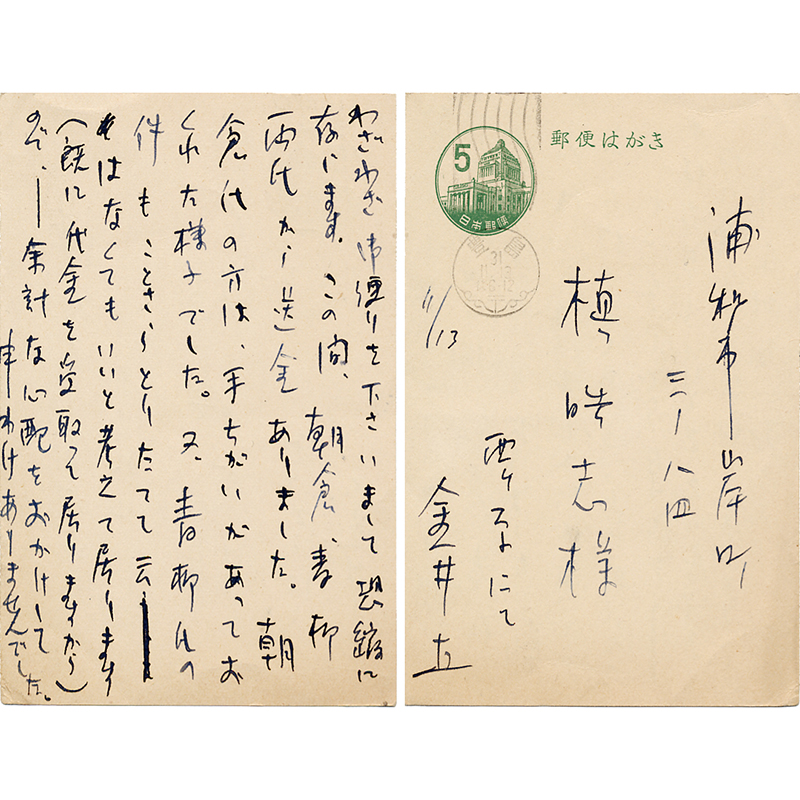 わざわざ御便りを下さいまして恐縮に
存じます。この間、朝倉、青柳
両氏から送金ありました。朝
倉氏の方は、手ちがいがあってお
くれた様子でした。又、青柳氏の
件もことさらとりたてて云
はなくてもいいと考えて居ります
(既に代金を受取って居りますから)
ので、―余計な心配をおかけして
申わけありませんでした。
郵便はがき
5
日本郵便
31
浦和市岸町
三ノ八四
槙晧志様
11/13
西ヶ原にて
金井直